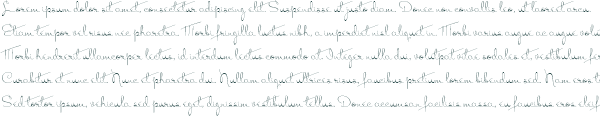 Lorem ipsum dolor sit amet, consectetur adipiscing elit. Suspendisse ut justo diam. Donec non convallis leo, ut laoreet arcu.
Etiam tempor vel risus nec pharetra. Morbi fringilla luctus nibh, a imperdiet nisl aliquet in. Morbi varius augue ac augue volu
Morbi hendrerit ullamcorper lectus, id interdum lectus commodo at. Integer nulla dui, volutpat vitae sodales et, vestibulum fer
Curabitur et nunc elit. Nunc et pharetra dui. Nullam aliquet ultrices risus, faucibus pretium lorem bibendum sed. Nam eros t
Sed tortor ipsum, vehicula sed purus eget, dignissim vestibulum tellus. Donec accumsan facilisis massa, eu faucibus eros eleif